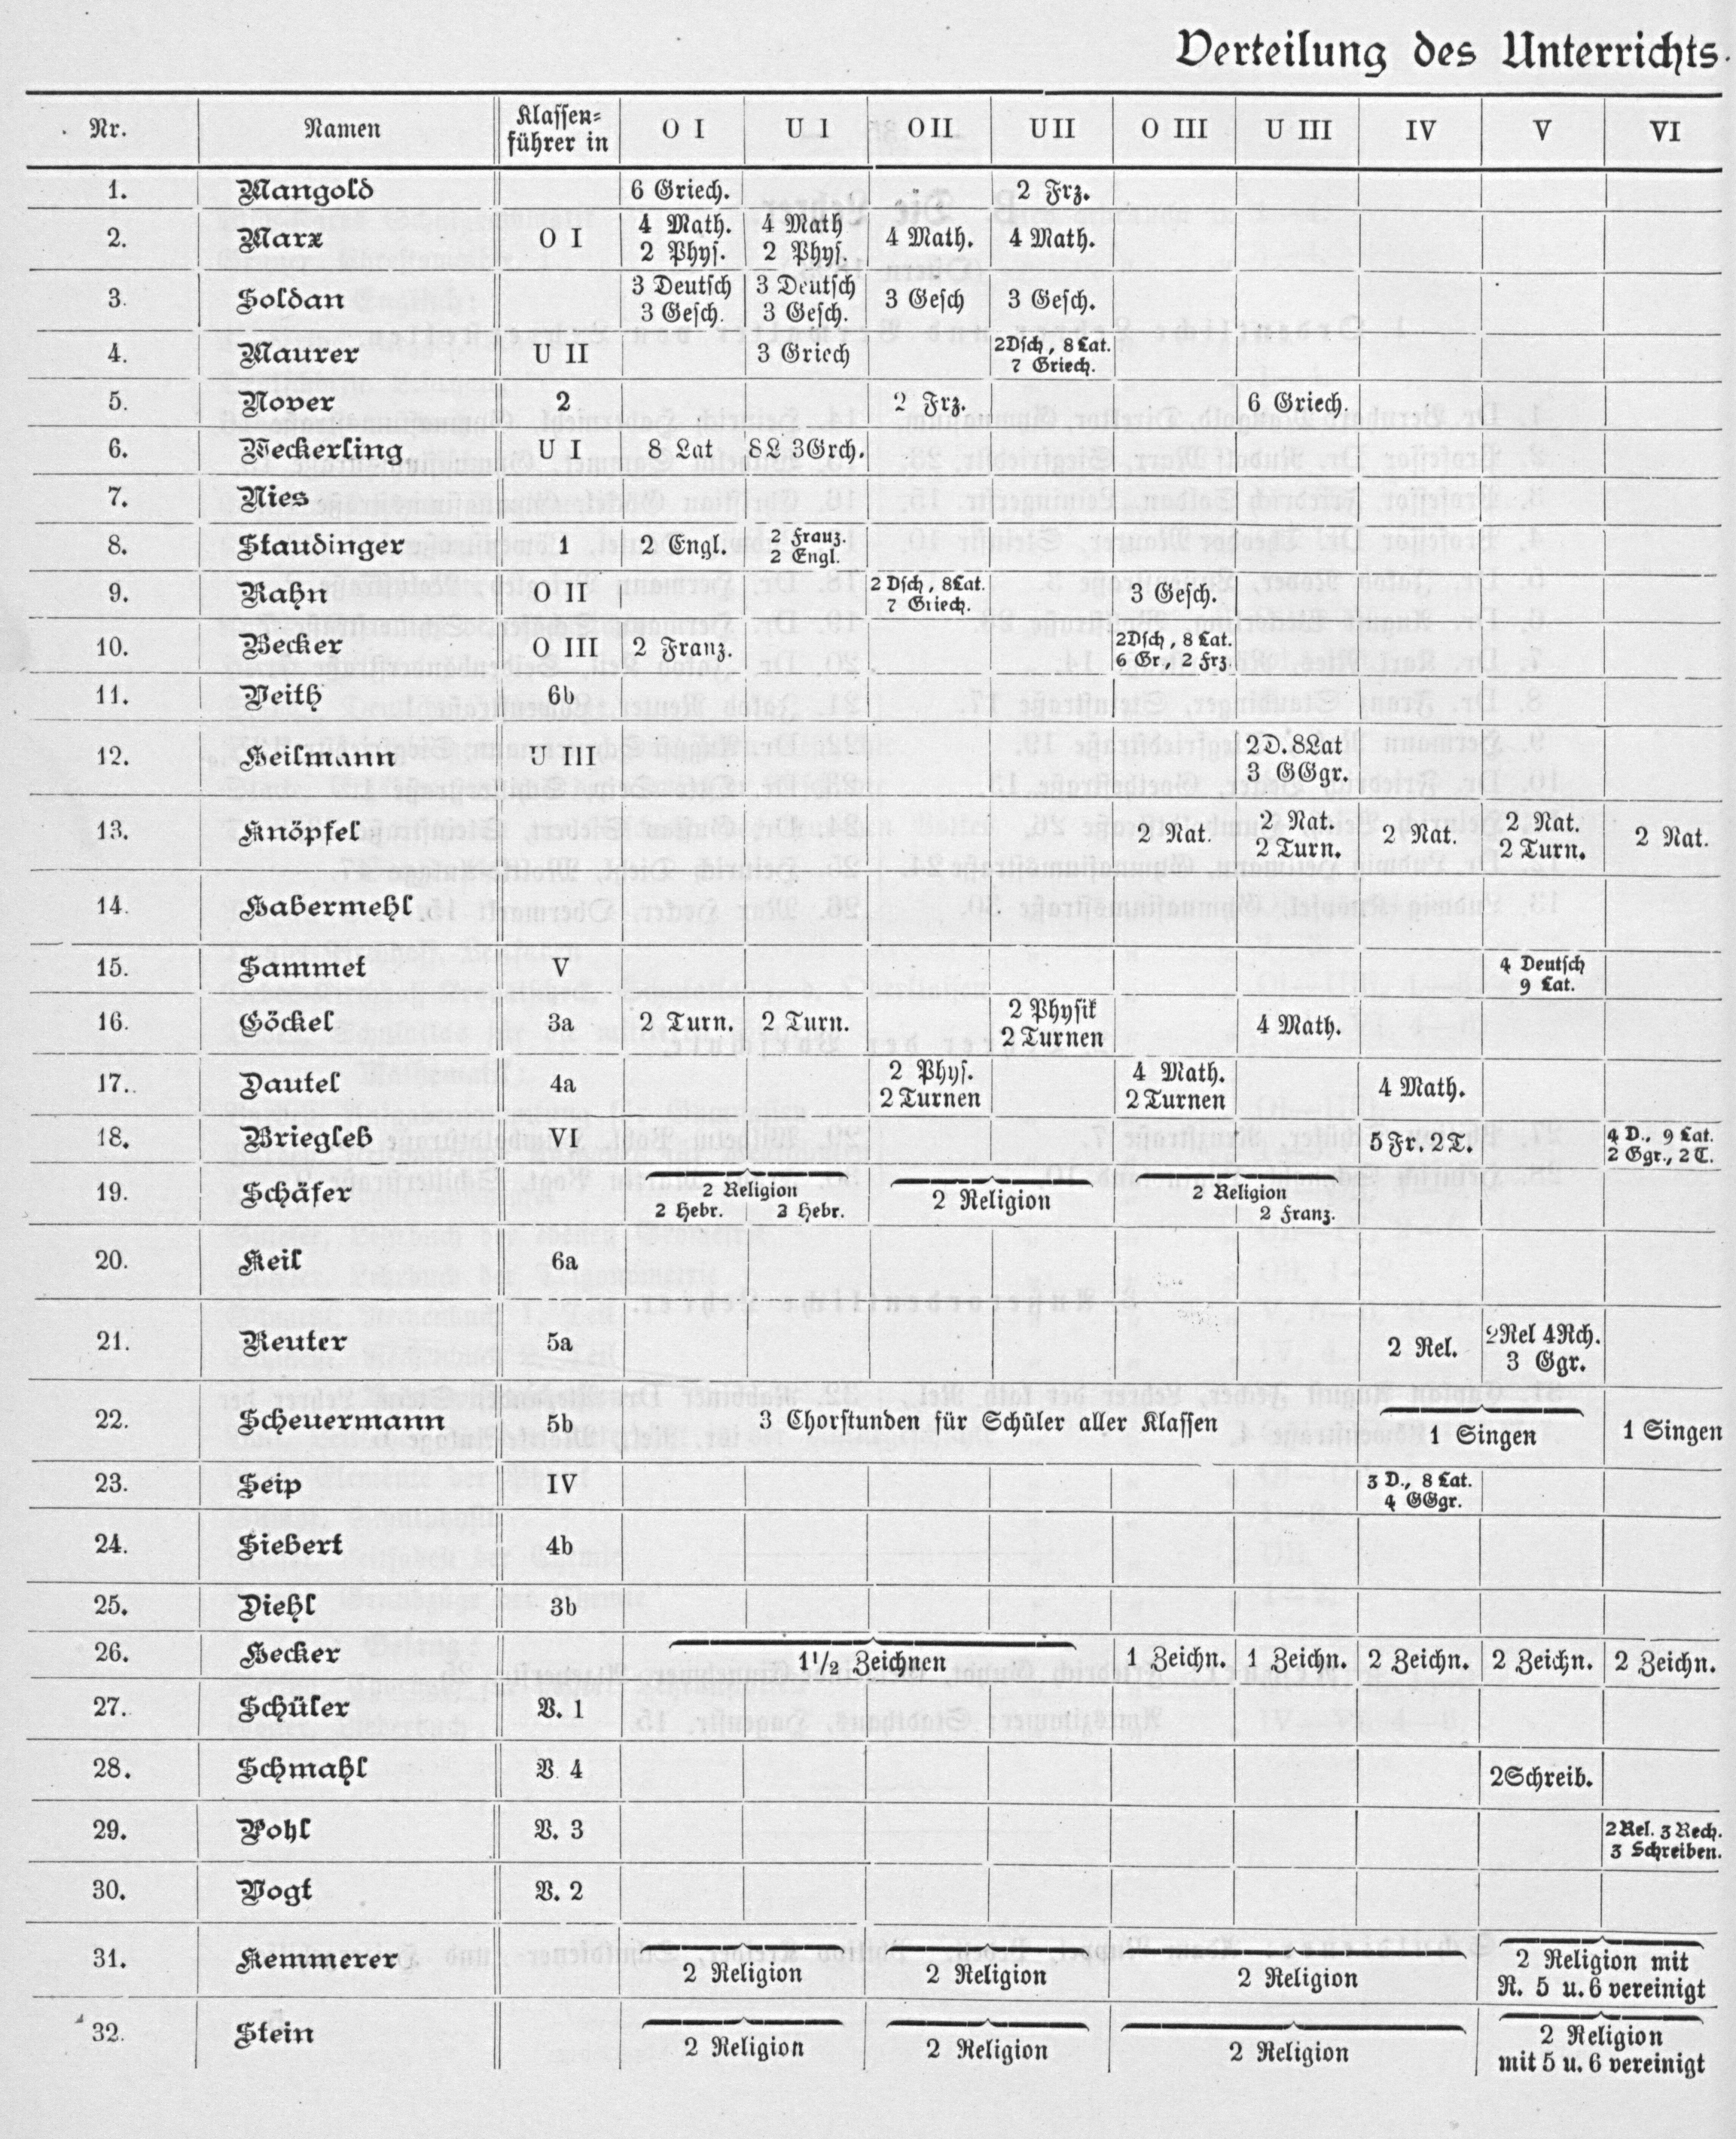 Verteilung des Unterrichts.
Nr. Namen Klassen= führer in O I U I O II U II O III U III IV V VI
1. Mangold 6 Griech. 2 Frz.
2. Marx O I 4 Math. 4 Math 4 Math. 4 Math.
2 Phys. 2 Phys.
3. Soldan 3 Deutsch 3 Deutsch 3 Gesch 3 Gesch.
3 Gesch. 3 Gesch.
4. Maurer U II 3 Griech 2Dsch, 8 Lat.
7 Griech.
5. Nover 2 2 Frz. 6 Griech.
6. Weckerling U I 8 Lat 8L 3Grch.
7. Nies
8. Staudinger 1 2 Engl. 2 Franz.
2 Engl.
9. Rahn O II 2 Dsch, 8Lat. 3 Gesch.
7 Griech.
10. Becker O III 2 Franz. 2Dsch, 8 Lat.
6 Gr., 2 Frz
11. Veith 6b
12. Heilmann U III 2D. 8Lat
3 GGgr.
13. Knöpfel 2 Nat. 2 Nat. 2 Nat. 2 Nat. 2 Nat.
2 Turn. 2 Turn.
14. Habermehl
15. Sammet V 4 Deutsch
9 Lat.
16. Göckel 3a 2 Turn. 2 Turn. 2 Physik 4 Math.
2 Turnen
17. Dautel 4a 2 Phys. 4 Math. 4 Math.
2 Turnen 2 Turnen
18. Briegleb VI 5 Fr. 2 T. 4 D., 9 Lat.
2 Ggr., 2 T.
19. Schäfer 2 Religion 2 Religion 2 Religion
2 Hebr. 2 Hebr. 2 Franz.
20. Keil 6a
21. Reuter 5a 2 Rel. 2Rel 4Rch.
3 Ggr.
22. Scheuermann 5b 3 Chorstunden für Schüler aller Klassen 1 Singen 1 Singen
23. Seip IV 3 D., 8 Lat.
4 GGgr.
24. Siebert 4b
25. Diehl 3b
26. Hecker 1 1/2 Zeichnen 1 Zeichn. 1 Zeichn. 2 Zeichn. 2 Zeichn. 2 Zeichn.
27. Schüler V. 1
28. Schmahl V. 4 2Schreib.
29. Pohl V. 3 2Rel. 3 Rech.
3 Schreiben.
30. Vogt V. 2
31. Kemmerer 2 Religion 2 Religion 2 Religion 2 Religion mit
R. 5 u. 6 vereinigt
32. Stein 2 Religion 2 Religion 2 Religion 2 Religion
mit 5 u. 6 vereinigt